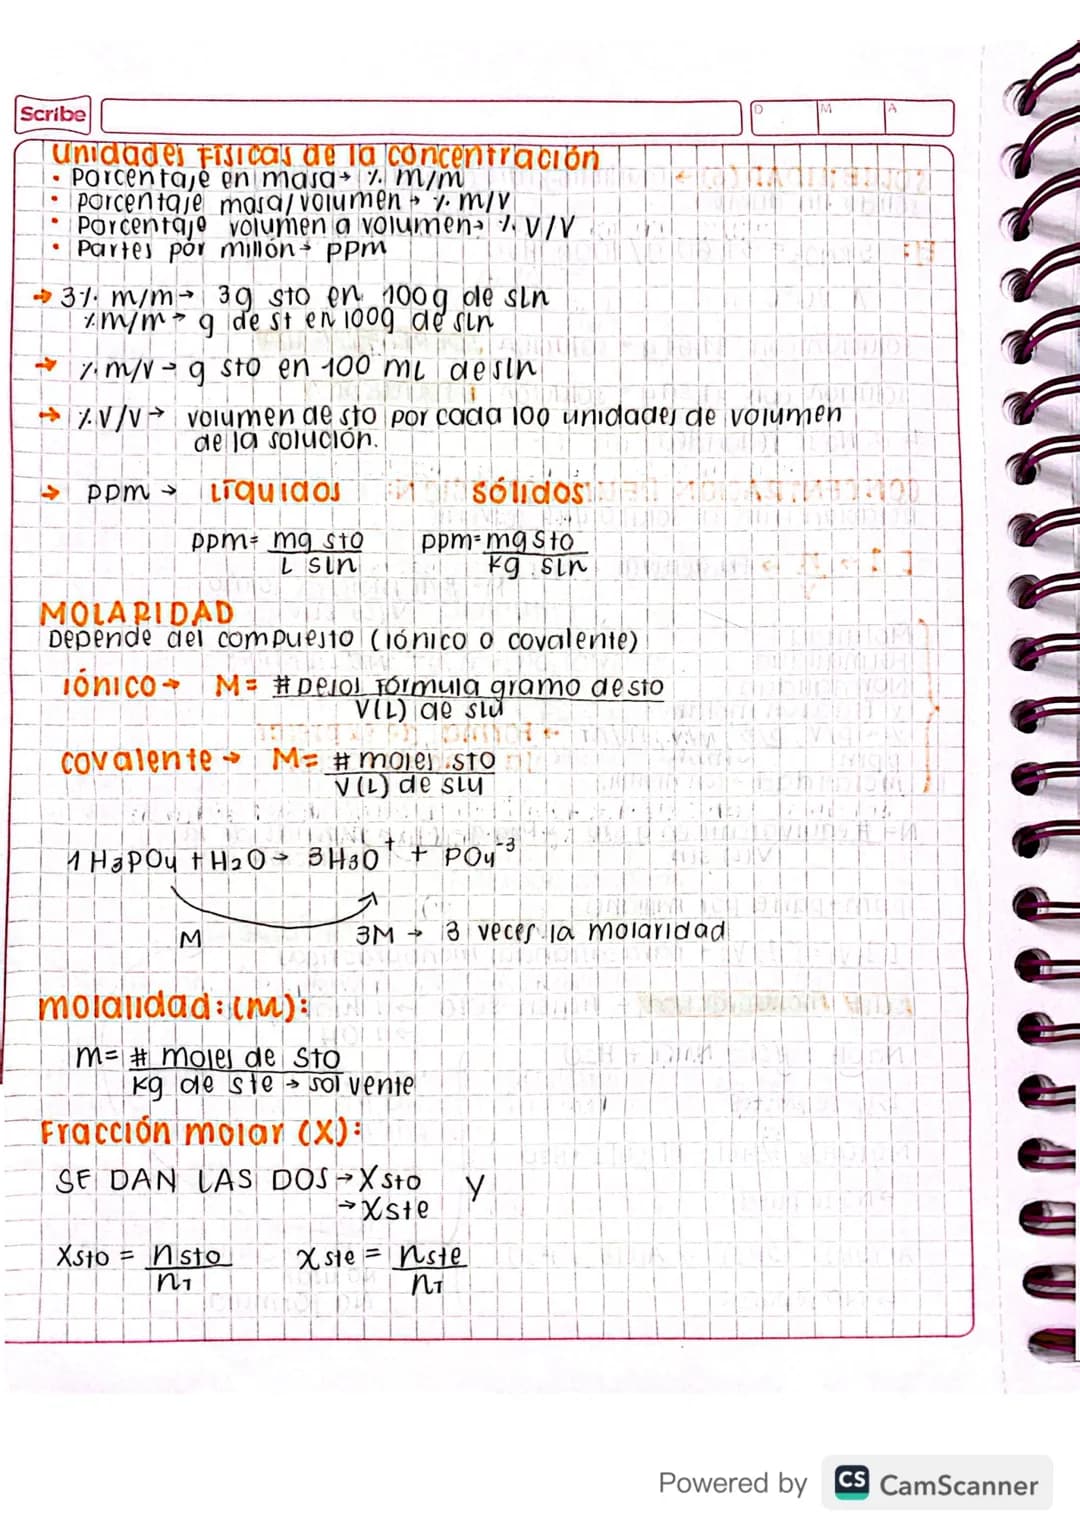 Scribe
D M A
Unidades Físicas de la concentración
• Porcentaje en masa → % m/m
• porcentaje masa/volumen → % m/v
• Porcentaje volumen a volumen → % V/V
• Partes por millón → ppm
→ 3% m/m → 3g sto en 100g de sln
% m/m → g de st en 100g de sln
→ % m/v → g sto en 100 mL de sln
→ % V/V → volumen de sto por cada 100 unidades de volumen
de la solución.
→ ppm → Líquidos sólidos
ppm = mg sto ppm = mg sto
L sln kg sln
MOLARIDAD
Depende del compuesto (iónico o covalente)
iónico → M = # pesos fórmula gramo de sto
V(L) de slu
covalente → M = # moles sto
V(L) de slu
1 H3PO4 + H2O → 3H3O+ + PO4-3
M 3M → 3 veces la molaridad
molalidad: (m):
m = # moles de sto
kg de ste → solvente
Fracción molar (X):
SE DAN LAS DOS → X sto y
→ X ste
Xsto = nsto X ste = nste
nT nT
Powered by CS CamScanner